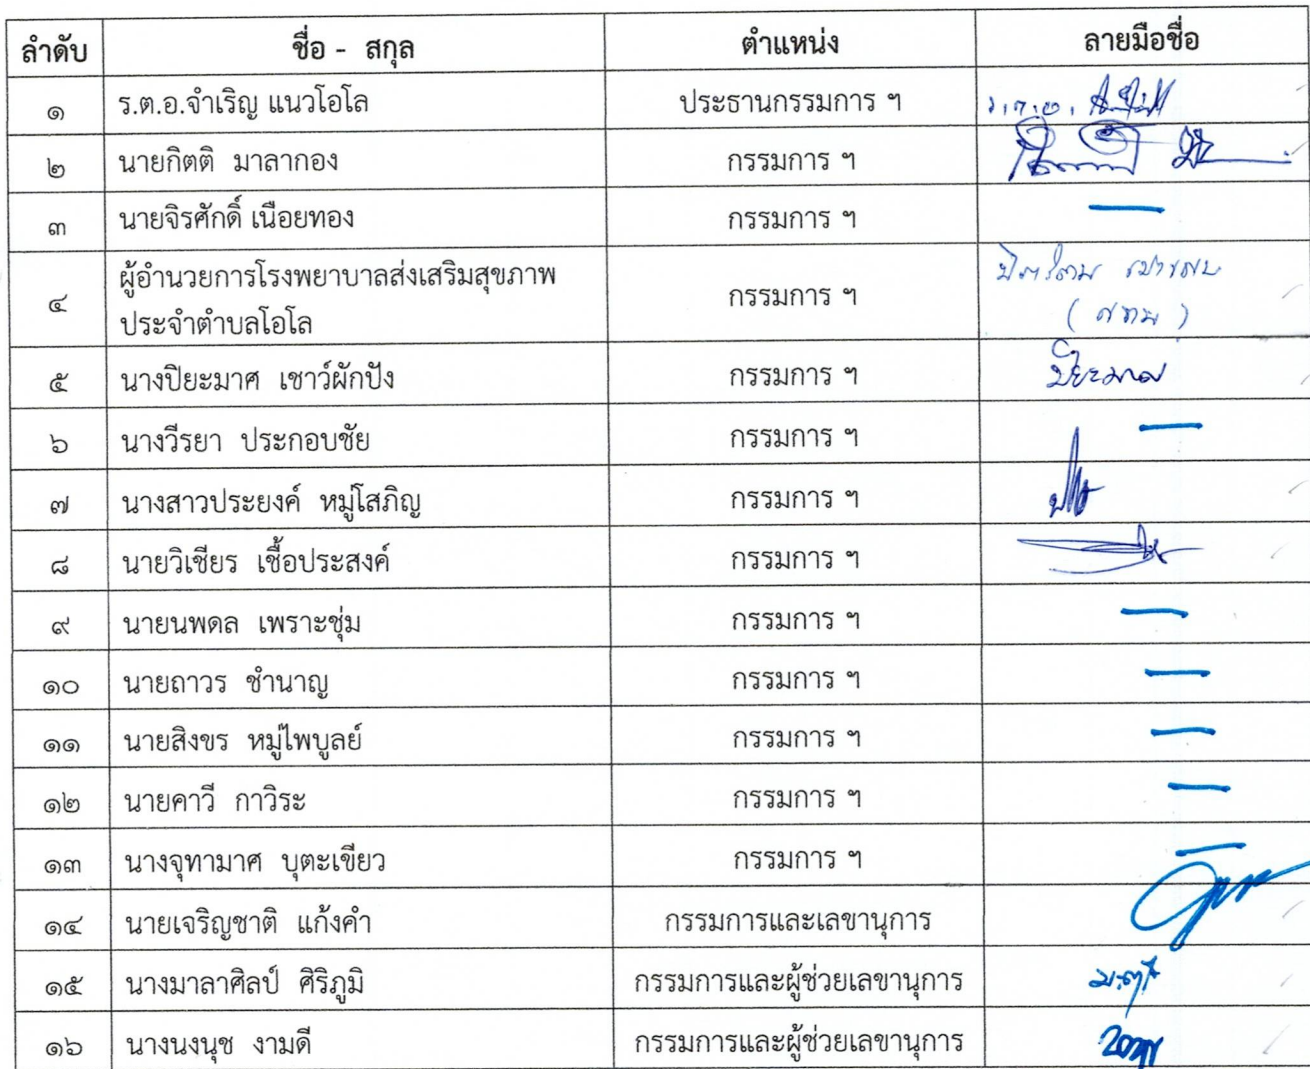 ลำดับ ชื่อ - สกุล ตำแหน่ง ลายมือชื่อ
๑ ร.ต.อ.จำเริญ แนวโอโล ประธานกรรมการ ฯ ร.ต.อ.
๒ นายกิตติ มาลากอง กรรมการ ฯ
๓ นายจิรศักดิ์ เนือยทอง กรรมการ ฯ —
๔ ผู้อำนวยการโรงพยาบาลส่งเสริมสุขภาพ
ประจำตำบลโอโล กรรมการ ฯ
๕ นางปิยะมาศ เชาว์ผักปัง กรรมการ ฯ ปิยะมาศ
๖ นางวีรยา ประกอบชัย กรรมการ ฯ —
๗ นางสาวประยงค์ หมู่โสภิญ กรรมการ ฯ
๘ นายวิเชียร เชื้อประสงค์ กรรมการ ฯ
๙ นายนพดล เพราะชุ่ม กรรมการ ฯ —
๑๐ นายถาวร ชำนาญ กรรมการ ฯ —
๑๑ นายสิงขร หมู่ไพบูลย์ กรรมการ ฯ —
๑๒ นายคาวี กาวิระ กรรมการ ฯ —
๑๓ นางจุฑามาศ บุตะเขียว กรรมการ ฯ —
๑๔ นายเจริญชาติ แก้งคำ กรรมการและเลขานุการ
๑๕ นางมาลาศิลป์ ศิริภูมิ กรรมการและผู้ช่วยเลขานุการ
๑๖ นางนงนุช งามดี กรรมการและผู้ช่วยเลขานุการ